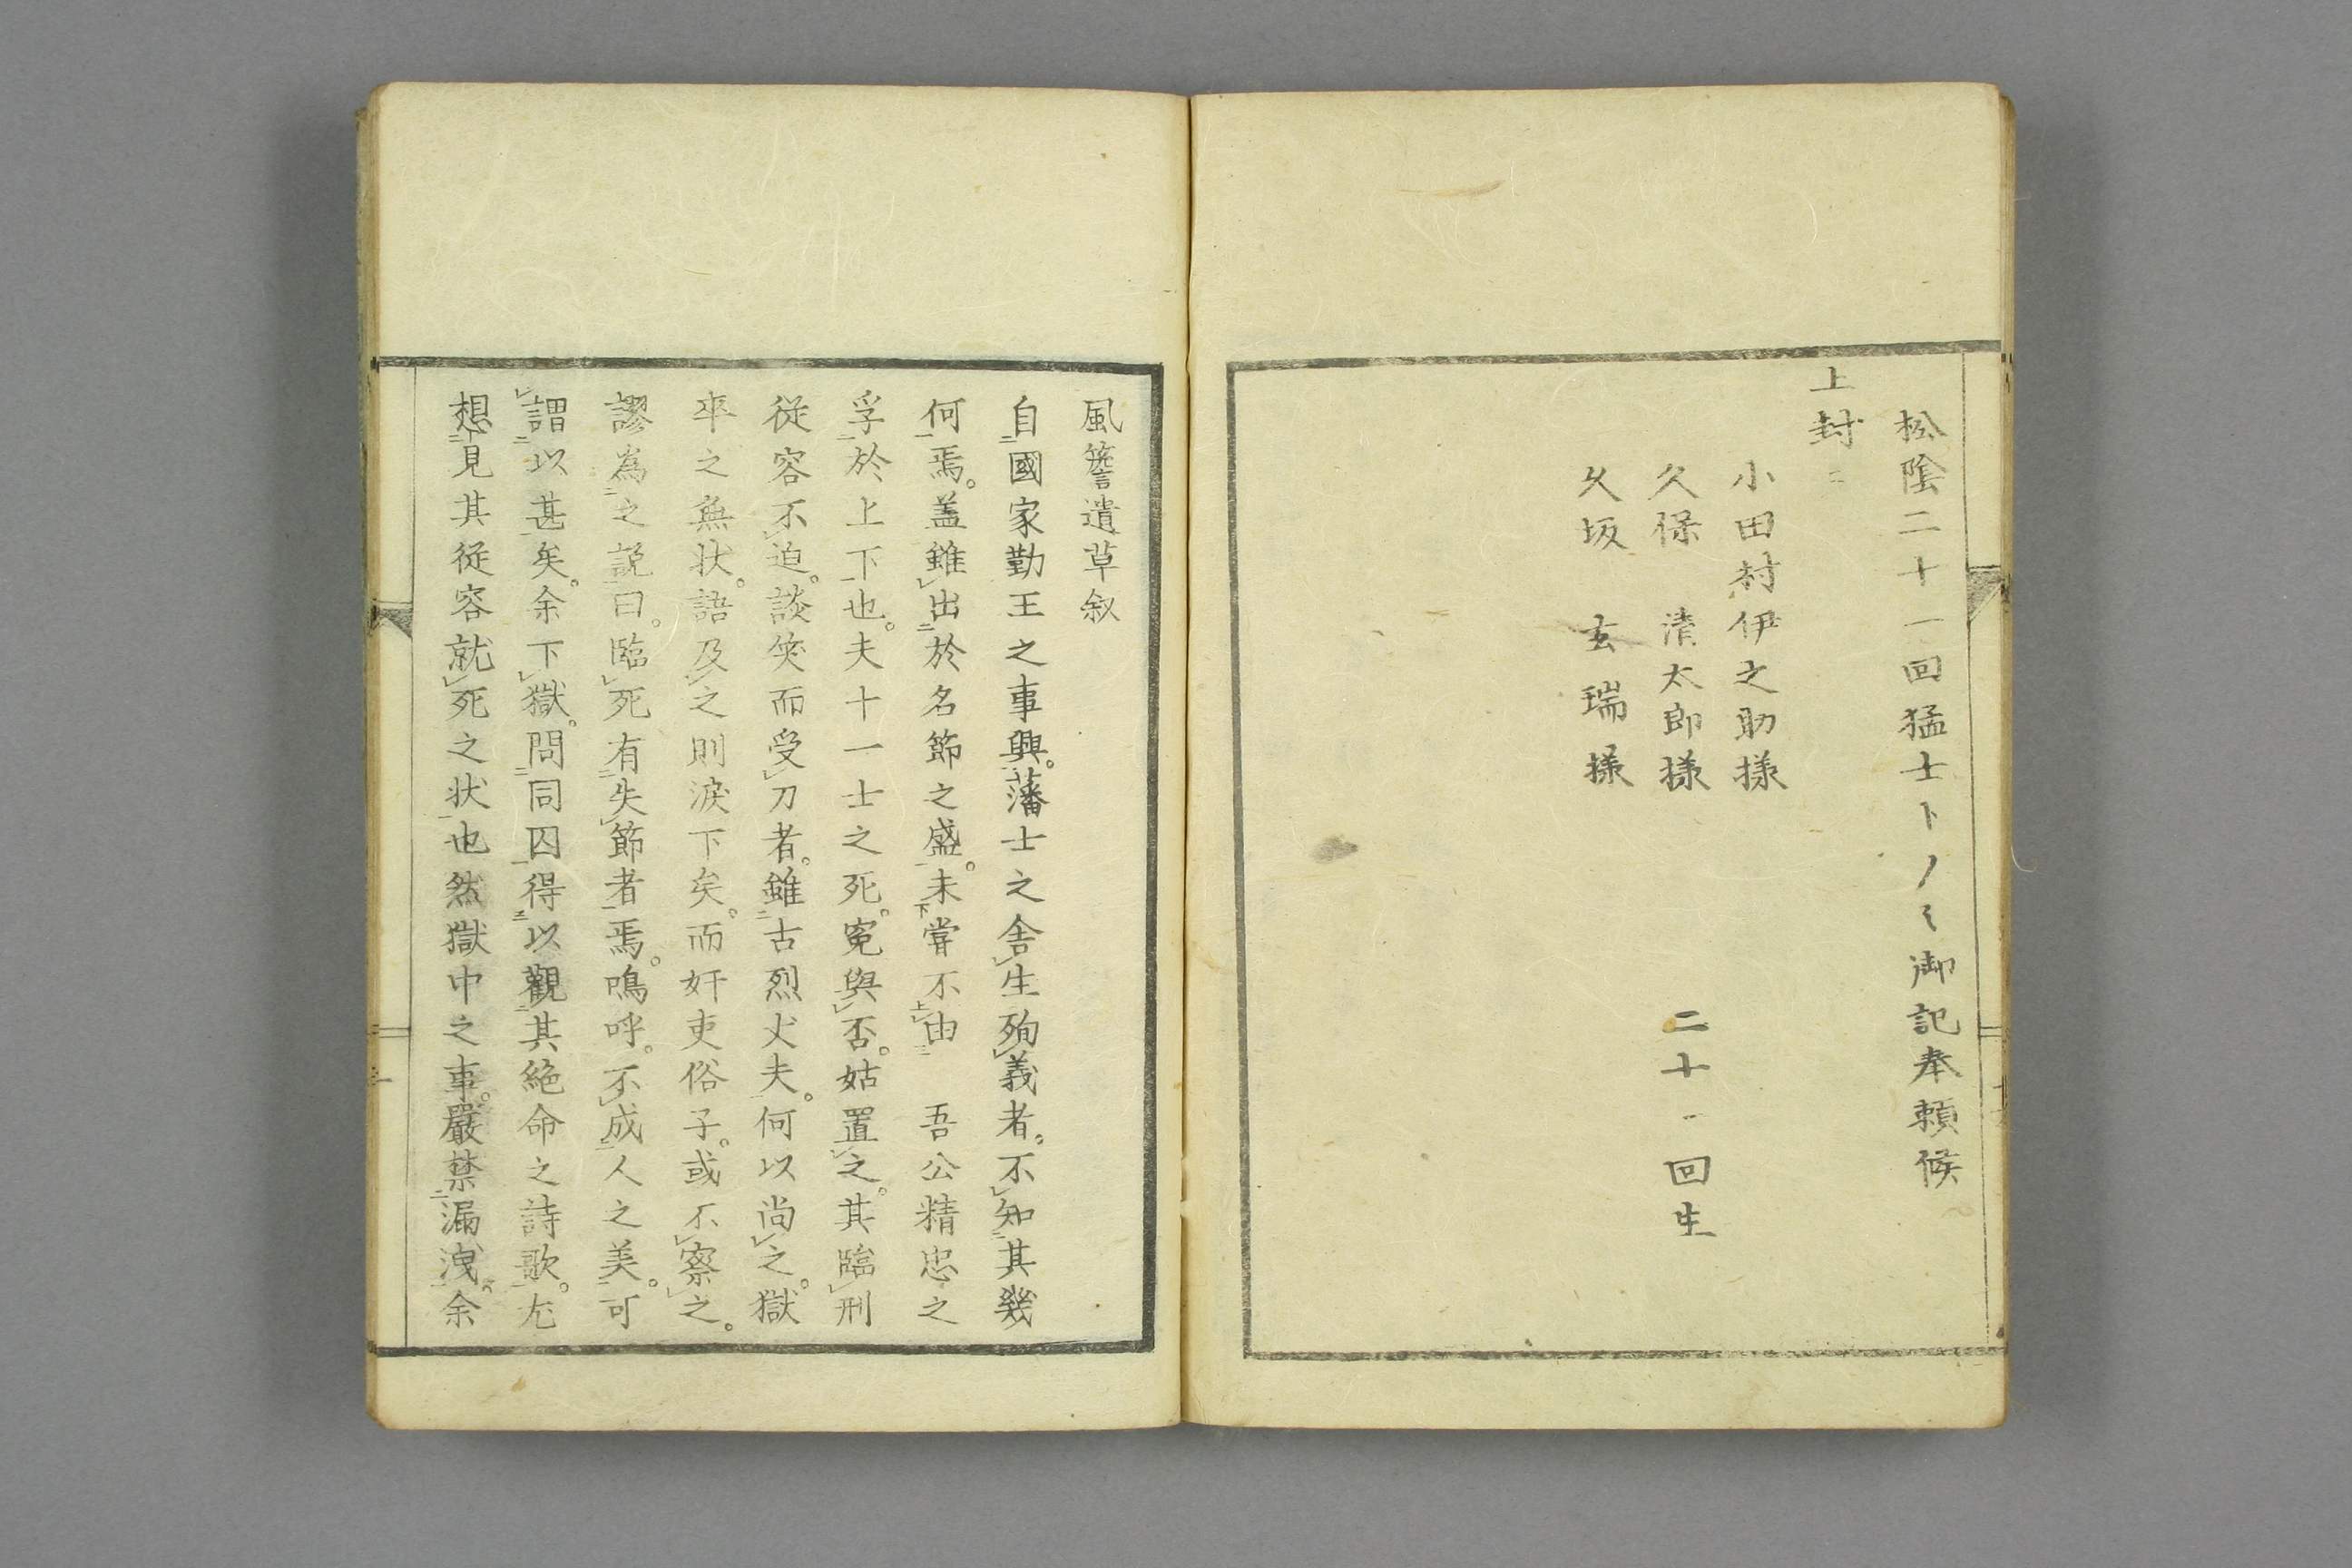 松陰二十一回猛士トノミ御記奉頼候
上封ニ
小田村伊之助様
久保　清太郎様
久坂　玄瑞様
二十一回生
風簷遺草叙
自國家勤王之事興。藩士之舎生殉義者。不知其幾
何焉。盖雖出於名節之盛。未嘗不由　吾公精忠之
孚於上下也。夫十一士之死。寃與否。姑置之。其臨刑
従容不迫。談笑而受刀者。雖古烈丈夫。何以尚之。獄
卒之無状。語及之則涙下矣。而奸吏俗子。或不察之。
謬為之説曰。臨死有失節者焉。嗚呼。不成人之美。可
謂以甚矣。余下獄。問同囚得以觀其絶命之詩歌。尤
想見其従容就死之状也然獄中之事。嚴禁漏洩。余